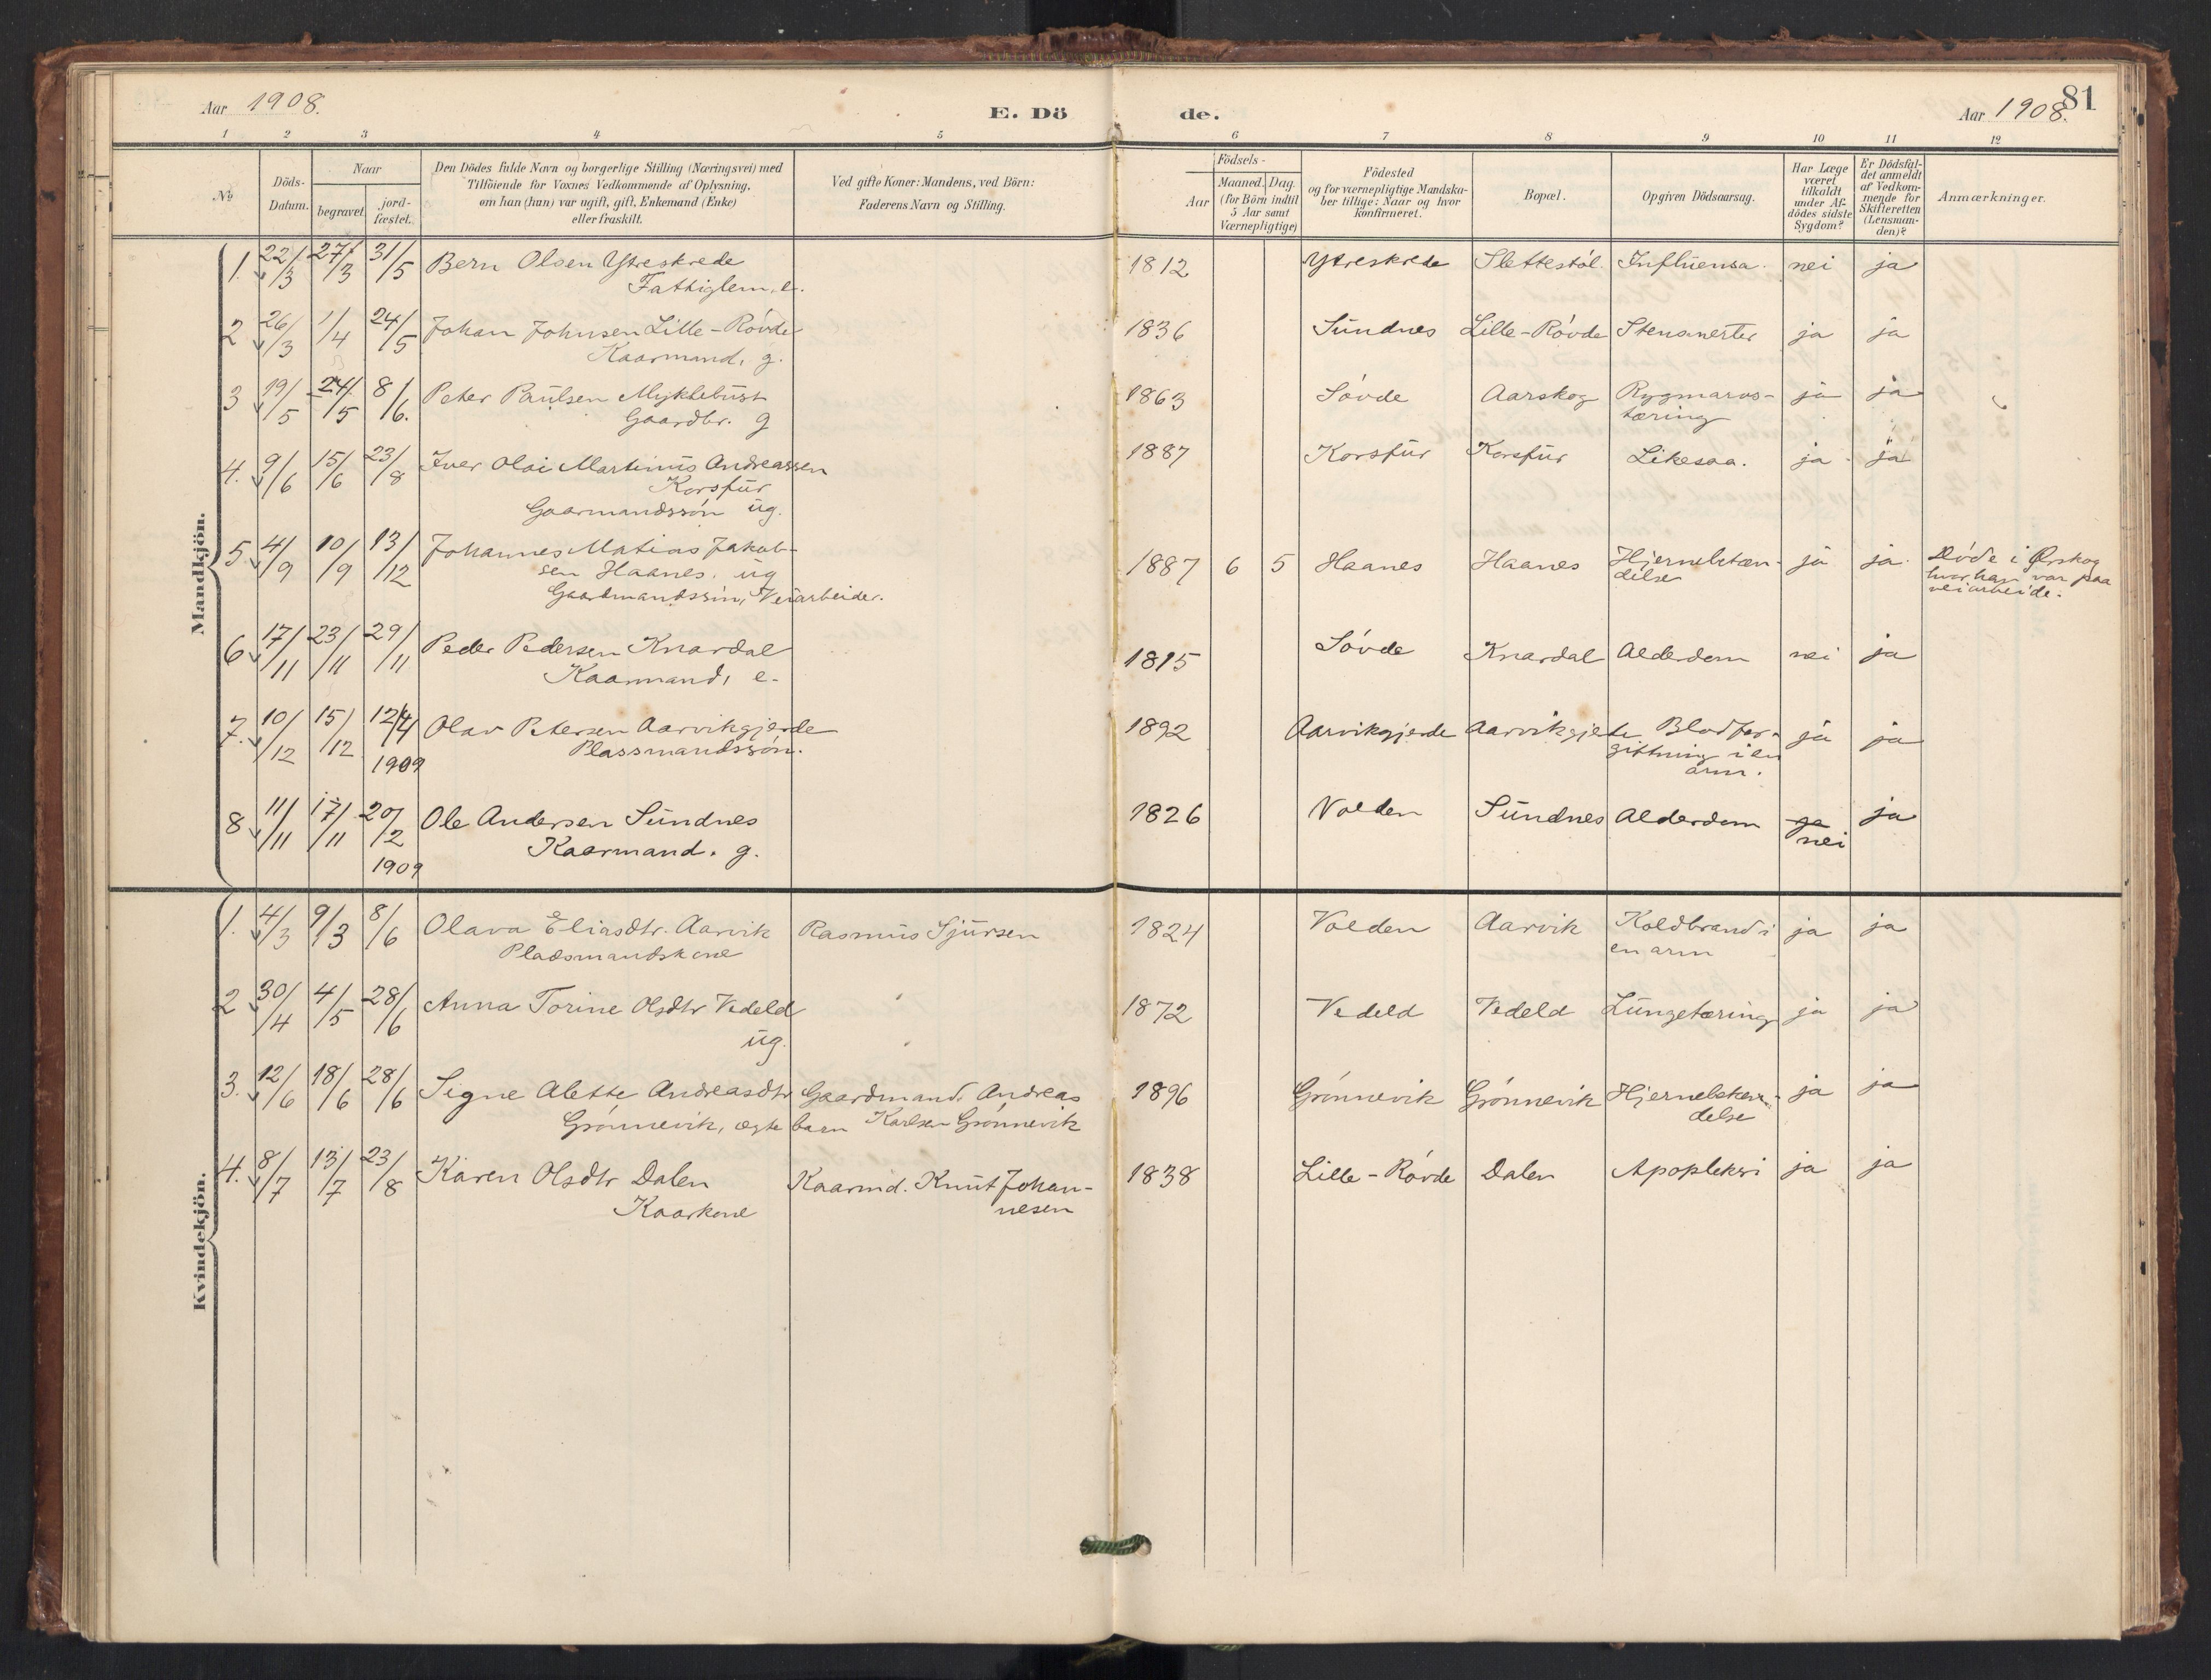 Aar 1908.
E. Dö de.
Aar 1908.
81
1 2 3 4 5 6 7 8 9 10 11 12
No
Döds-Datum.
Naar
begravet.
jord-fæstet.
Den Dödes fulde Navn og borgerlige Stilling (Næringsvei) med
Tilföiende for Voxnes Vedkommende af Oplysning,
om han (hun) var ugift, gift, Enkemand (Enke)
eller fraskilt.
Ved gifte Koner: Mandens, ved Börn:
Faderens Navn og Stilling.
Födsels-
Aar
Maaned. Dag.
(for Börn indtil
5 Aar samt
Værnepligtige)
Födested
og for værnepligtige Mandska-
ber tillige: Naar og hvor
konfirmeret.
Bopæl.
Opgiven Dödsaarsag.
Har Læge
været
tilkaldt
under Af-
dödes sidste
Sygdom?
Er Dödsfal-
det anmeldt
af Vedkom-
mende for
Skifteretten
(Lensman-
den)?
Anmærkninger.
Mandkjön.
1. 22/3 27/3 31/5 Bern Olsen Ytreskrede 1812 Ytreskrede Slettestøl. Influensa. nei ja
Fattiglem, e.
2 26/3 1/4 24/5 Johan Johnsen Lille-Røvde 1836 Sundnes Lille-Røvde Stensmerter ja ja
Kaarmand, g.
3 19/5 24/5 8/6. Peter Paulsen Myklebust 1863 Søvde Aarskog Rygmarvs- ja ja
Gaardbr. g tæring
4. 9/6 15/6 23/8 Iver Olai Martinus Andreassen 1887 Korsfur Korsfur Likesaa. ja ja
Korsfur
Gaarmandssøn ug.
5. 4/9 10/9 13/12 Johannes Matias Jakob- 1887 6 5 Haanes Haanes Hjernebetæn- ja ja. Døde i Ørskog
sen Haanes. ug delse hvor han var paa
Gaardmandssøn, Veiarbeider. veiarbeide.
6 17/11 23/11 29/11 Peder Pedersen Knardal 1815 Søvde Knardal Alderdom nei ja
Kaarmand, e-
7. 10/12 15/12 12/4 Olav Petersen Aarvikgjerde 1892 Aarvikgjerde Aarvikgjerde Blodfor- ja ja
1909 Plassmandssøn. giftning i en
arm.
8 11/11 17/11 20/2 Ole Andersen Sundnes 1826 Volden Sundnes Alderdom ja ja
Kaarmand. g. nei
1909
Kvindekjön.
1. 4/3 9/3 8/6 Olava Eliasdtr. Aarvik Rasmus Sjursen 1824 Volden Aarvik Koldbrand i ja ja
Pladsmandskone en arm
2 30/4 4/5 28/6 Anna Torine Olsdtr Vedeld 1872 Vedeld Vedeld Lungetæring ja ja
ug.
3. 12/6 18/6 28/6 Signe Alette Andreasdtr Gaardmand, Andreas 1896 Grønnevik Grønnevik ja ja
Grønnevik, ægte barn Karlsen Grønnevik delse
4. 8/7 13/7 23/8 Karen Olsdtr Dalen Kaarmd. Knut Johan- 1838 Lille-Røvde Dalen Apopleksi ja ja
Kaarkone nesen